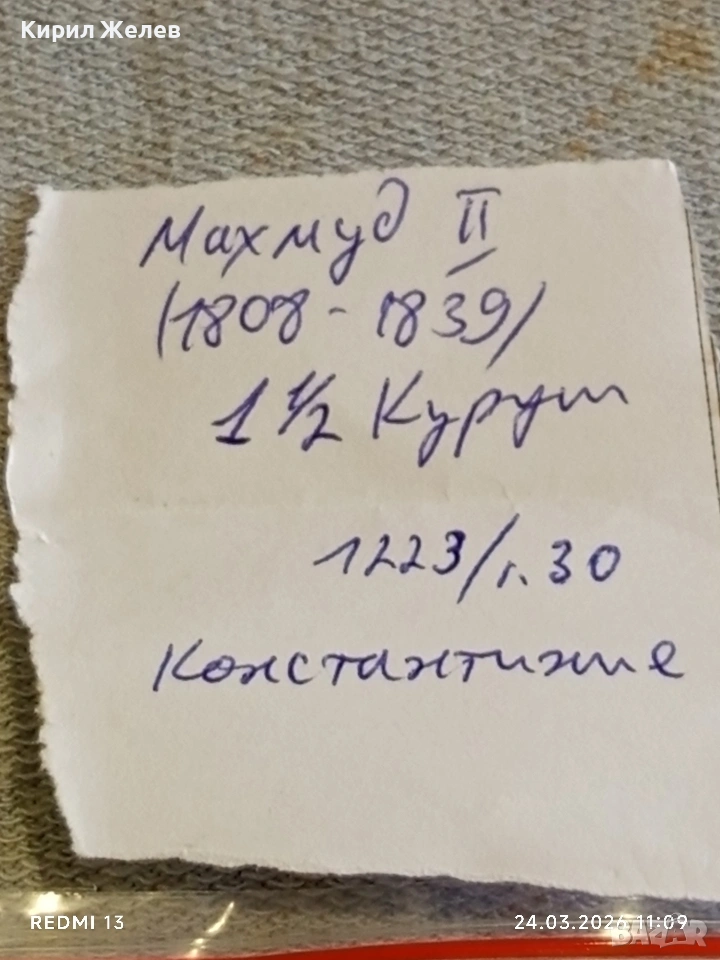 Кирил Желев
Махмуд II
(1808 - 1839)
1 1/2 Куруш
1223/г.30
Константиние
REDMI 13
24.03.2026 11:09
BAZAR